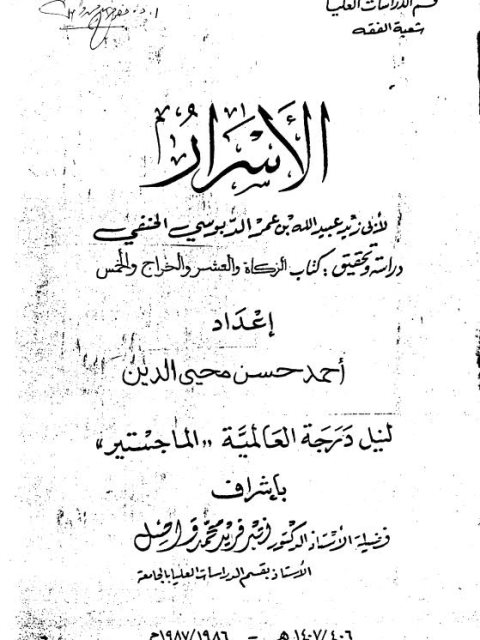 قسم الدراسات العليا
شعبة الفقه
الأَسْرَارُ
لأبي زيد عبيد الله بن عمر الدبوسي الحنفي
دراسة وتحقيق : كتاب الزكاة والعشر والخراج والخمس
إعْدَاد
أحمد حسن محيى الدين
لنيل دَرَجَة العَالميَّة "الماجستير"
بإشراف
فضيلة الأستاذ الدكتور نصر فريد محمد واصل
الأستاذ بقسم الدراسات العليا بالجامعة
١٤٠٧/٤٠٦ هـ - ١٩٨٧/١٩٨٦م